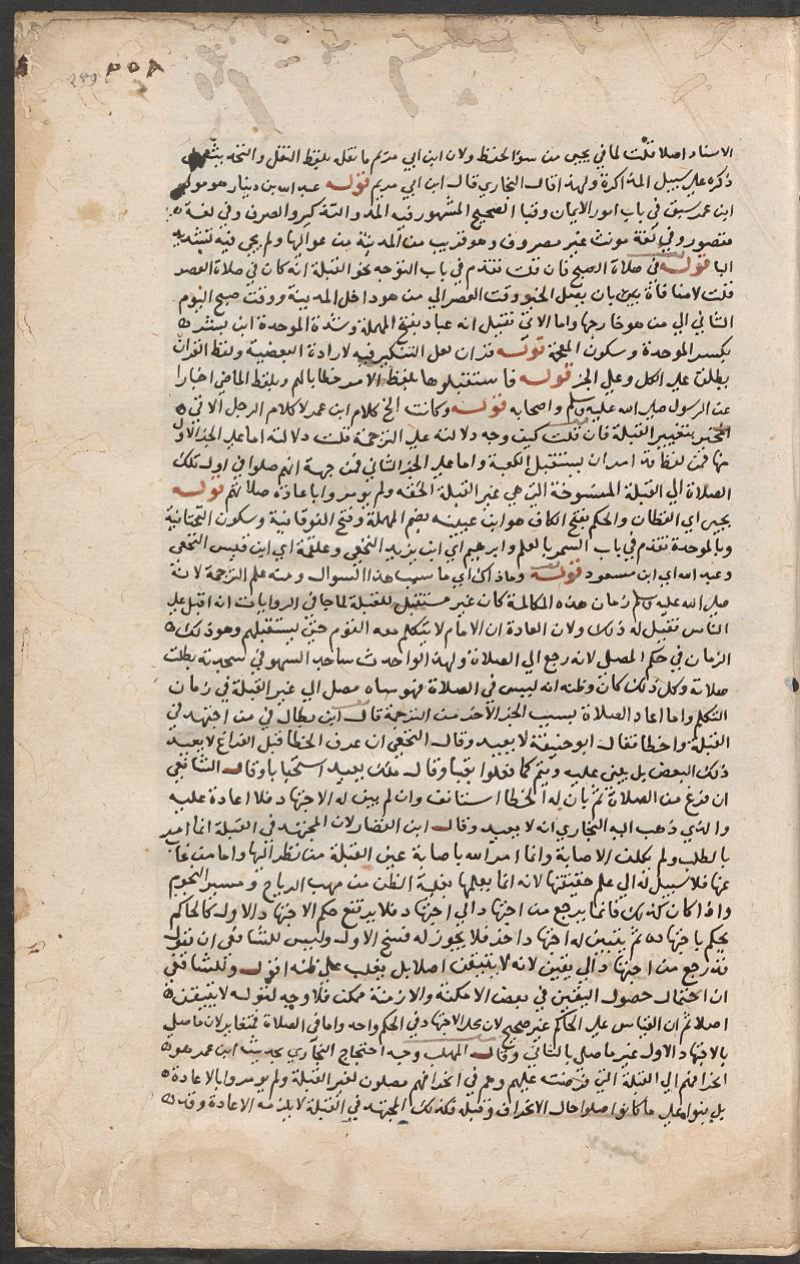 ٢٥٨
الاسناد اصلا قلت لما في يحيى من سوء الحفظ ولان ابن ابي مريم ما نقله بلفظ النقل والتحديث بل
ذكره علي سبيل المذاكرة ولهذا قال البخاري قال ابن ابي مريم قوله عبد الله بن دينار هو مولى
ابن عمر سبق في باب امور الايمان وقبا الصحيح المشهور فيه المد والتذكير والصرف وفي لغة
مقصور وفي لغة مونث غير مصروف وهو قريب من المدينة من عواليها ولم يجي فيه تشديد
البا قوله في صلاة الصبح فان قلت تقدم في باب التوجه نحو القبلة انه كان في صلاة العصر
قلت لا منافاة بين بان يصل الخبر وقت العصر الي من هو داخل المدينة ووقت صبح اليوم
الثاني الي من هو خارجها واما الاتي فقيل انه عباد بفتح المهملة وشدة الموحدة ابن بشر
بكسر الموحدة وسكون المعجمة قوله قران لعل التنكير فيه لارادة البعضية ولفظ القران
يطلق علي الكل وعلي الجز قوله فاستقبلوها بلفظ الامر خطابا لهم وبلفظ الماضي اخبارا
عن الرسول صلى الله عليه وسلم واصحابه قوله وكانت الخ كلام ابن عمر لا كلام الرجل الاتي
المخبر بتغيير القبلة فان قلت كيف وجه دلالته علي الترجمة قلت دلالته اما علي الجز الاول
منها فمن لفظة قد امر ان يستقبل الكعبة واما علي الجز الثاني فمن جهة انهم صلوا في اول تلك
الصلاة الي القبلة المنسوخة التي هي غير القبلة الحقه ولم يومروا باعادة صلاتهم قوله
يحيى اي القطان والحكم بفتح الكاف هو ابن عيينه بضم المهملة وفتح الفوقانية وسكون التحتانية
وبالموحدة تقدم في باب السمر بالعلم وابرهيم اي ابن يزيد النخعي وعلقمة اي ابن قيس النخعي
وعبد الله اي ابن مسعود قوله وما ذاك اي ما سبب هذا السوال ومنه علم الترجمة لانه
صلى الله عليه وسلم زمان هذه المكالمة كان غير مستقبل للقبلة لما جا في الروايات انه اقبل علي
الناس فقيل له ذلك ولان العادة ان الامام لا يتكلم معه القوم حتى يستقبلهم وهو ذلك
الزمان في حكم المصلي لانه رجع الي الصلاة ولهذا لو احدث ساجد السهو في سجدته بطلت
صلاته وكل ذلك كان وظنه انه ليس في الصلاة فهو ساه مصل الي غير القبلة في زمان
التكلم وما اعاد الصلاة بسبب الجز الآخر من الترجمة قال ابن بطال في من اجتهد في
القبلة واخطا فقال ابو حنيفة لا يعيد وقال النخعي ان عرف الخطا قبل الفراغ لا يعيد
ذلك البعض بل يبني عليه ويتم كما فعلوا بقبا وقال ملك يعيد استحبابا وقال الشافعي
ان فرغ من الصلاة ثم بان له الخطا استانف وان لم يبن له الاجتهاد فلا اعادة عليه
والذي ذهب اليه البخاري انه لا يعيد وقال ابن القصار لان المجتهد في القبلة انما امر
بالطلب ولم يكلف الاصابة وانما امر الله باصابة عين القبلة من نظر اليها واما من غاب
عنها فلا سبيل له الي علم حقيقتها لانه انما يعلمها بغلبة الظن من مهب الرياح ومسير النجوم
واذا كان كذلك فانما يرجع من اجتهاد الي اجتهاد فلا يرتفع حكم الاجتهاد الاول كالحاكم
يحكم باجتهاده ثم يتبين له اجتهاد اخر فلا يجوز له فسخ الاول وليس للشافعي ان يقول
قد رجع من اجتهاد الي يقين لانه لا يتيقن اصلا بل يغلب علي ظنه اقول وللشافعي
ان احتمال حصول اليقين في بعض الامكنة والازمنة ممكن فلا وجه لقوله لا يتيقن
اصلا ثم ان القياس علي الحاكم غير صحيح لان محل الاجتهاد في الحكم واحد واما في الصلاة فمتغاير لان ما صلى
بالاجتهاد الاول غير ما صلى بالثاني وقال المهلب وجه احتجاج البخاري بحديث ابن عمر هو
انحرافهم الي القبلة التي فرضت عليهم وهم في انحرافهم مصلون لغير القبلة ولم يومروا بالاعادة
بل بنوا علي ما كانوا صلوا حال الانحراف وقبله فكذلك المجتهد في القبلة لا يلزمه الاعادة وقد